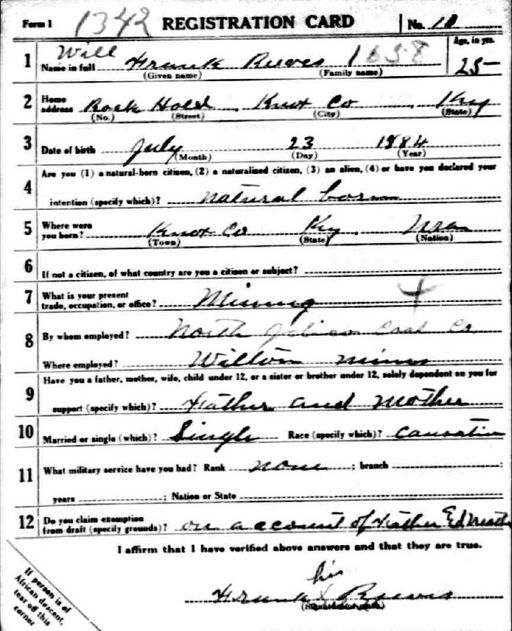 Form 1 1342 REGISTRATION CARD No. 10
Will Age, in yrs.
1 Name in full Frank Reeves 1658 25
(Given name) (Family name)
2 Home address Rock Hold Knox Co Ky
(No.) (Street) (City) (State)
3 Date of birth July 23 1884
(Month) (Day) (Year)
Are you (1) a natural-born citizen, (2) a naturalized citizen, (3) an alien, (4) or have you declared your
4 intention (specify which)? natural born
5 Where were you born? Knox Co Ky
(Town) (State) (Nation)
6 If not a citizen, of what country are you a citizen or subject?
7 What is your present trade, occupation, or office? Mining
8 By whom employed? North Jellico Coal Co
Where employed? Wilton mines
Have you a father, mother, wife, child under 12, or a sister or brother under 12, solely dependent on you for
9 support (specify which)? Father and Mother
10 Married or single (which)? Single Race (specify which)?
11 What military service have you had? Rank none ; branch
years ; Nation or State
12 Do you claim exemption from draft (specify grounds)? on a account of Father &
I affirm that I have verified above answers and that they are true.
If person is of
African descent,
tear off this
corner
his
Frank X Reeves